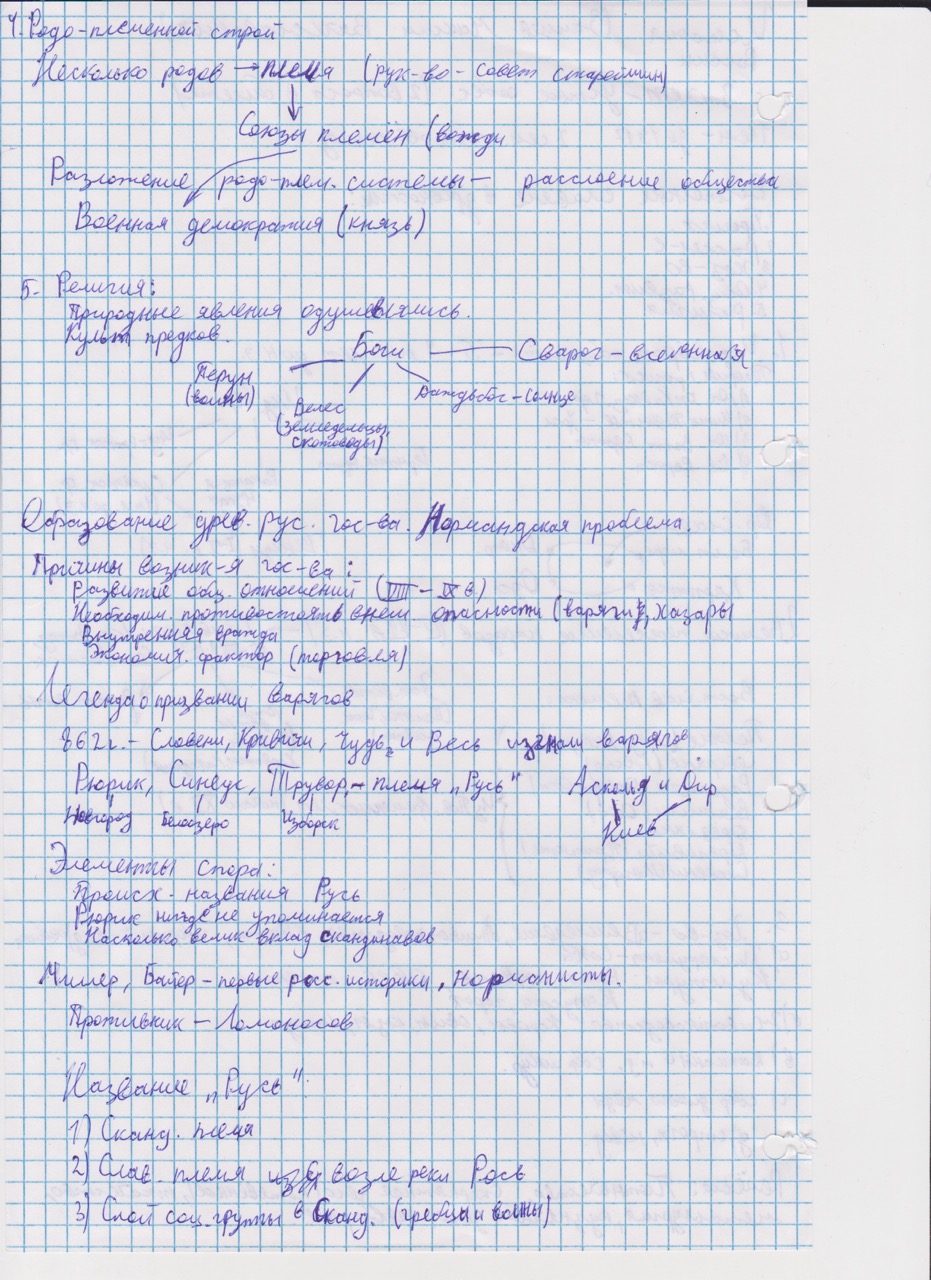 4. Родо-племенной строй
Несколько родов → племя (рук-во - совет старейшин)
Союзы племён (вожди
Разложение родо-плем. системы - расслоение общества
Военная демократия (князь)
5. Религия:
Природные явления одушевлялись.
Культ предков.
Боги
Сварог - вселенная
Перун
(воины)
Велес
(земледельцы,
скотоводы)
Даждьбог - солнце
Образование древ. рус. гос-ва. Нормандская проблема.
Причины возник-я гос-ва:
Развитие общ. отношений (VIII - IX в.)
Необходим. противостоять внеш. опасности (варяги, хазары
Внутренняя вражда
Экономич. фактор (торговля)
Легенда о призвании варягов
862 г. - Словени, Кривичи, Чудь и Весь изгнали варягов
Рюрик, Синеус, Трувор, - племя „Русь"
Аскольд и Дир
Новгород
Белоозеро
Изборск
Киев
Элементы спора:
Происх. названия Русь
Рюрик нигде не упоминается
Насколько велик вклад скандинавов
Миллер, Байер - первые росс. историки, норманисты.
Противник - Ломоносов
Название „Русь".
1) Сканд. племя
2) Слав. племя возле реки Рось
3) Слой соц. группы в Сканд. (гребцы и воины)